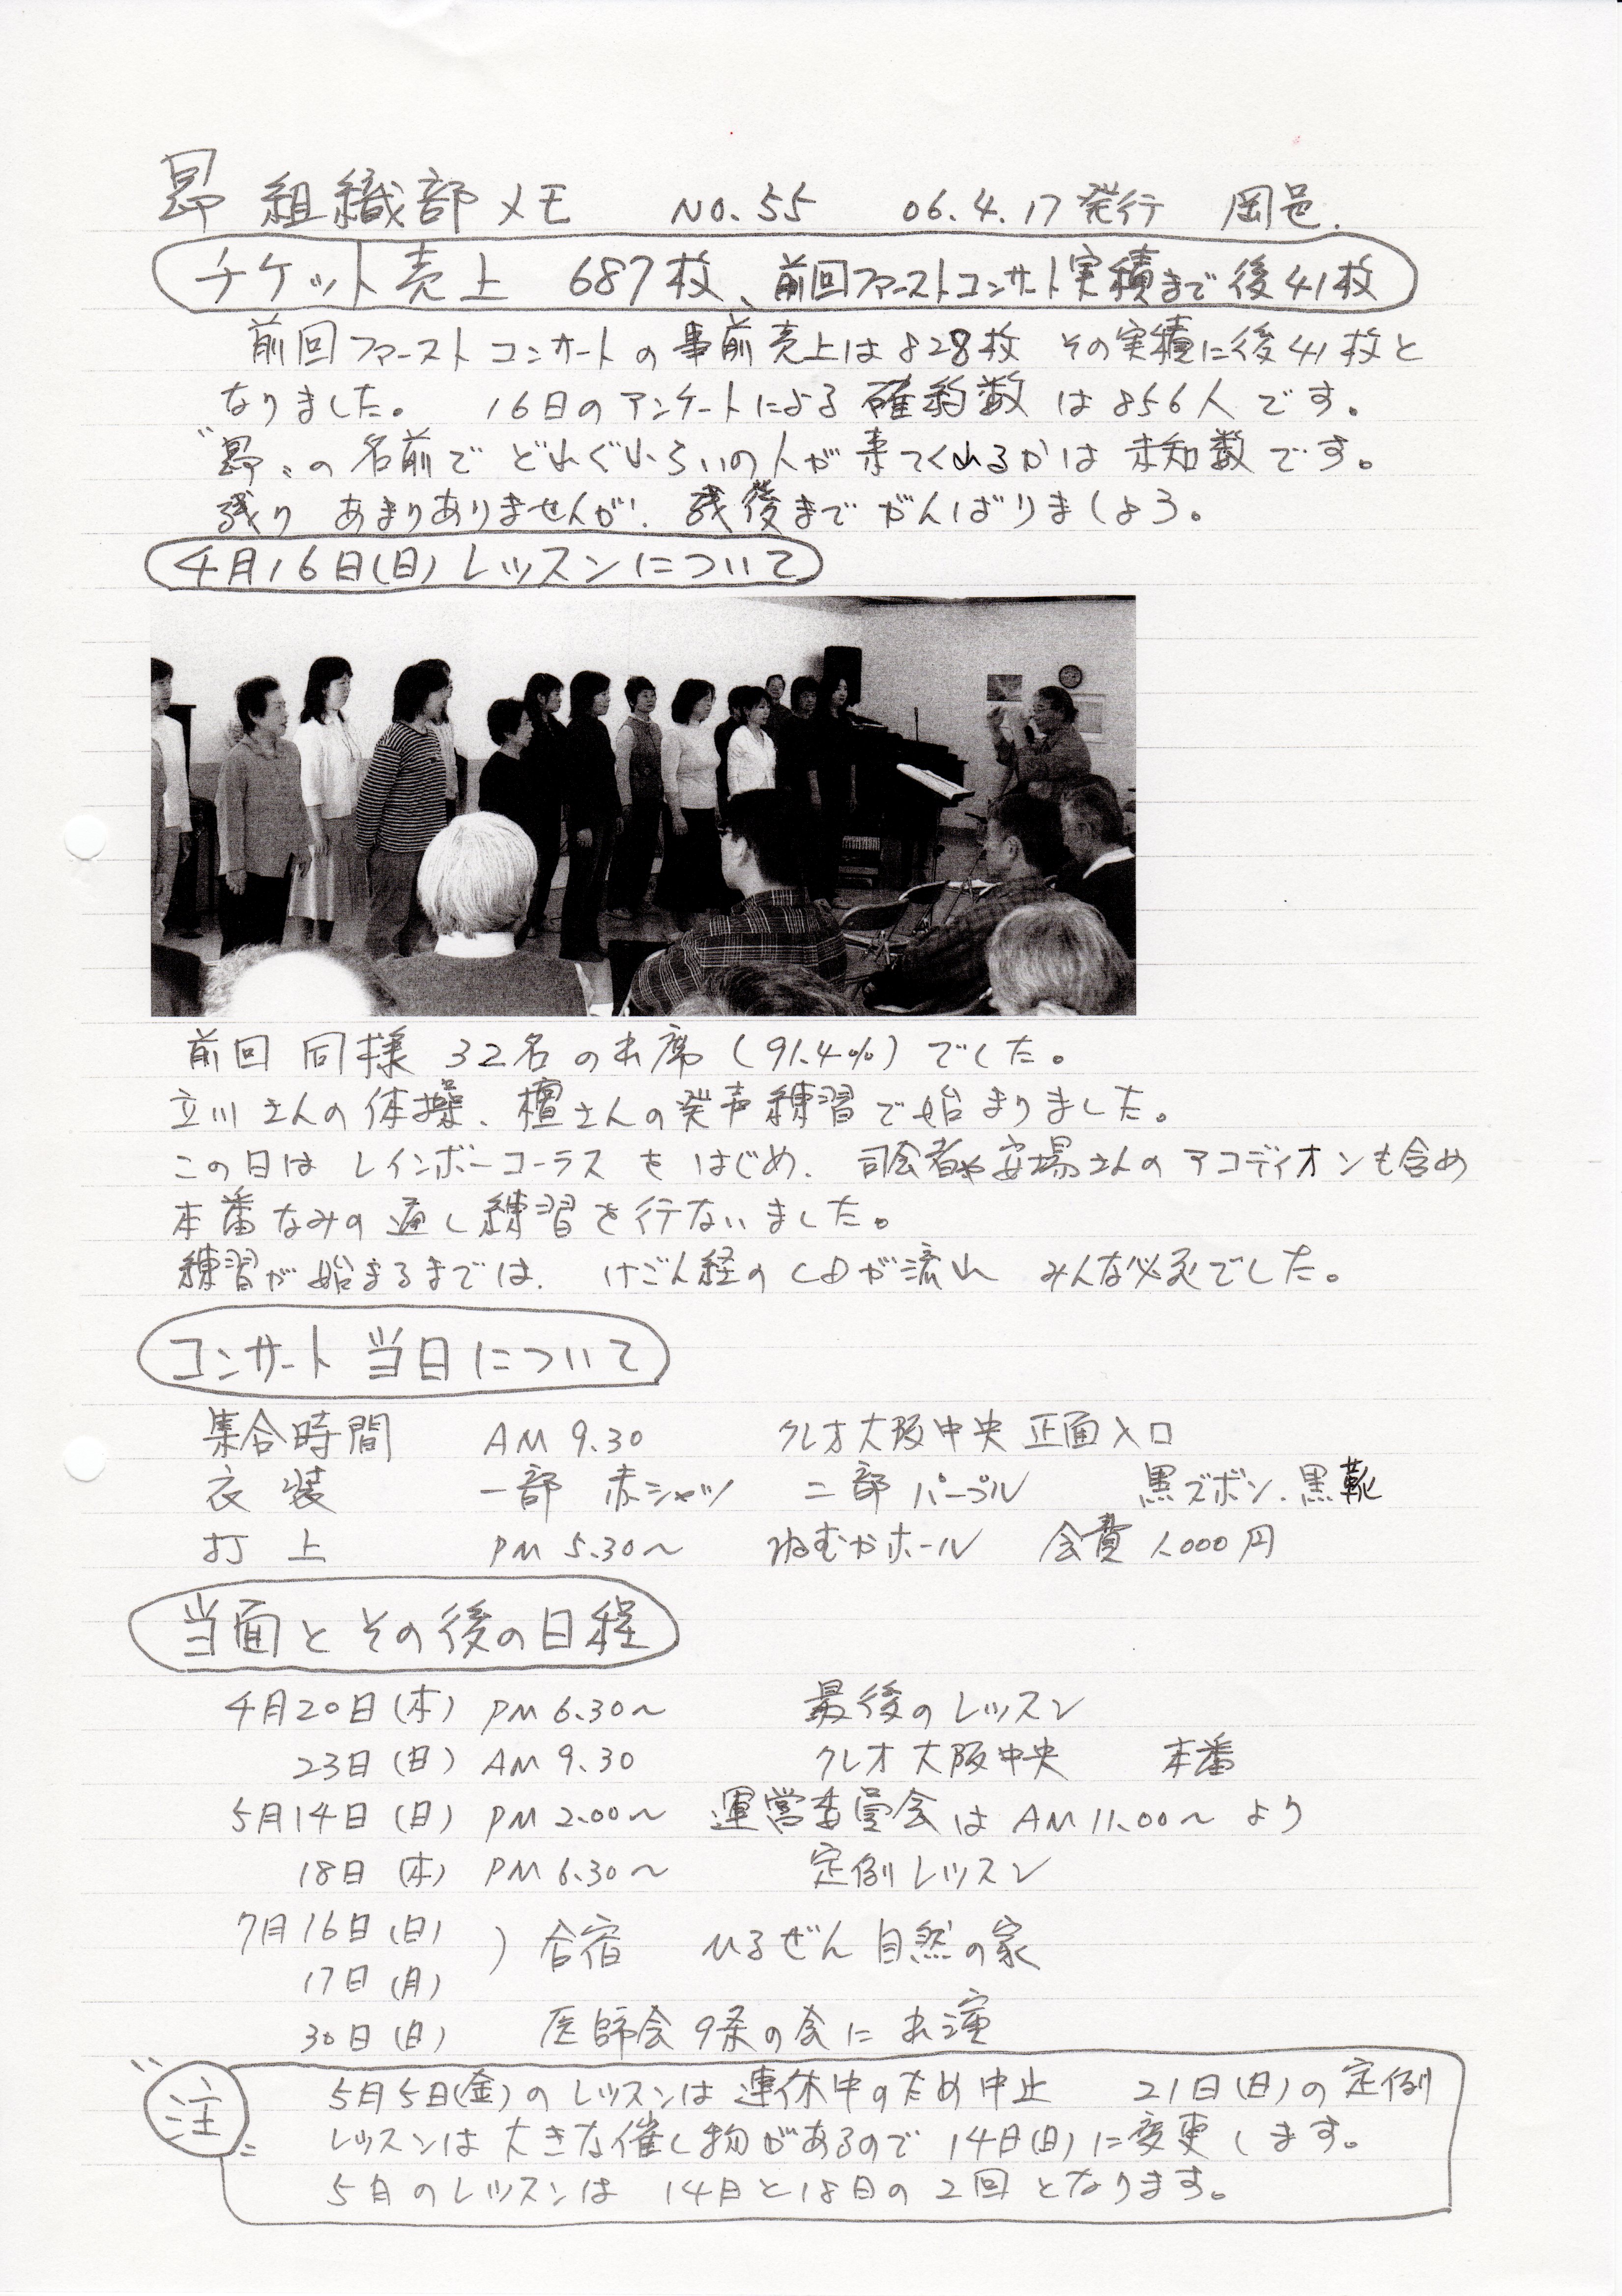 昴 組織部メモ NO.55 06.4.17発行 岡邑.
チケット売上 687枚、前回ファーストコンサート実積まで後41枚
前回ファーストコンサートの事前売上は828枚 その実積に後41枚と
なりました。 16日のアンケートによる確約数は856人です。
"昴"の名前でどれぐれらいの人が来てくれるかは未知数です。
残り あまりありませんが、残後までがんばりましょう。
4月16日(日)レッスンについて
前回同様 32名の出席(91.4%)でした。
立川さんの体操、檀さんの発声練習で始まりました。
この日はレインボーコーラスをはじめ、司会者や安場さんのアコディオンも含め
本番なみの通し練習を行ないました。
練習が始まるまでは、けごん経のCDが流れ みんな必死でした。
コンサート当日について
集合時間 AM 9.30 クレオ大阪中央 正面入口
衣装 一部 赤シャツ 二部 パープル 黒ズボン、黒靴
打上 PM 5.30〜 ねむかホール 会費 1,000円
当面とその後の日程
4月20日(木) PM 6.30〜 最後のレッスン
23日(日) AM 9.30 クレオ大阪中央 本番
5月14日(日) PM 2.00〜 運営委員会はAM 11.00〜より
18日(木) PM 6.30〜 定例レッスン
7月16日(日)
) 合宿 ひるぜん自然の家
17日(月)
30日(日) 医師会9条の会に出演
"注" 5月5日(金)のレッスンは連休中のため中止 21日(日)の定例
レッスンは大きな催し物があるので14日(日)に変更します。
5月のレッスンは 14日と18日の2回となります。